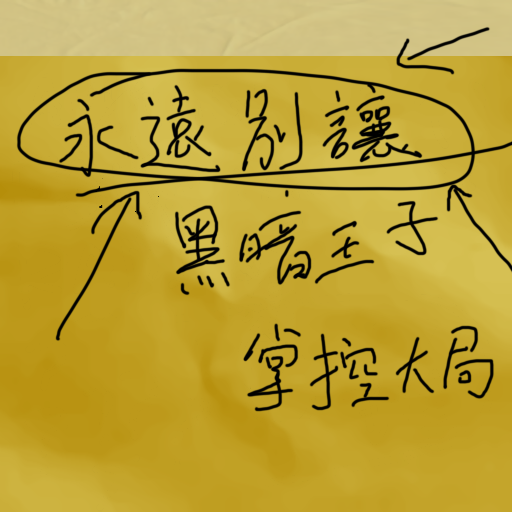 永遠別讓
黑暗王子
掌控大局